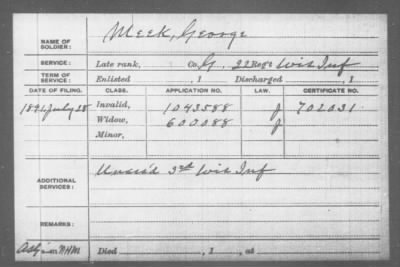 NAME OF SOLDIER: Meek, George
SERVICE: Late rank, Co. G, 22 Reg't Wis Inf
TERM OF SERVICE: Enlisted , 1 Discharged , 1
DATE OF FILING. CLASS. APPLICATION NO. LAW. CERTIFICATE NO.
1891 July 28 Invalid, 1043588 J 702031
Widow, 600088 J
Minor,
ADDITIONAL SERVICES: 3rd Wis Inf
REMARKS:
Died , 1 , at